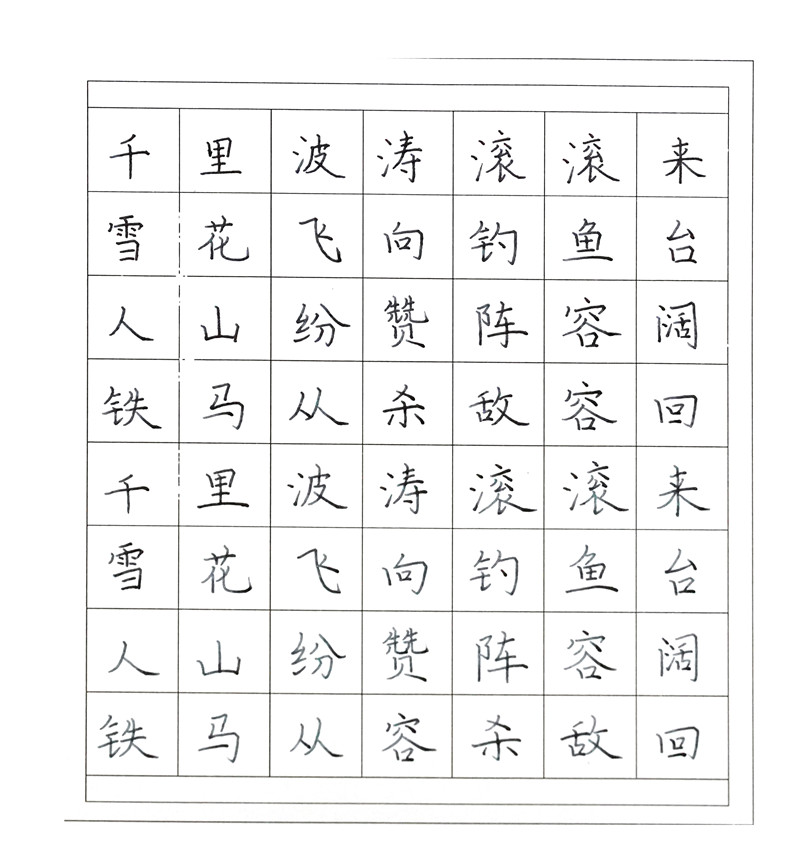 千里波涛滚滚来
雪花飞向钓鱼台
人山纷赞阵容阔
铁马从杀敌容回
千里波涛滚滚来
雪花飞向钓鱼台
人山纷赞阵容阔
铁马从容杀敌回